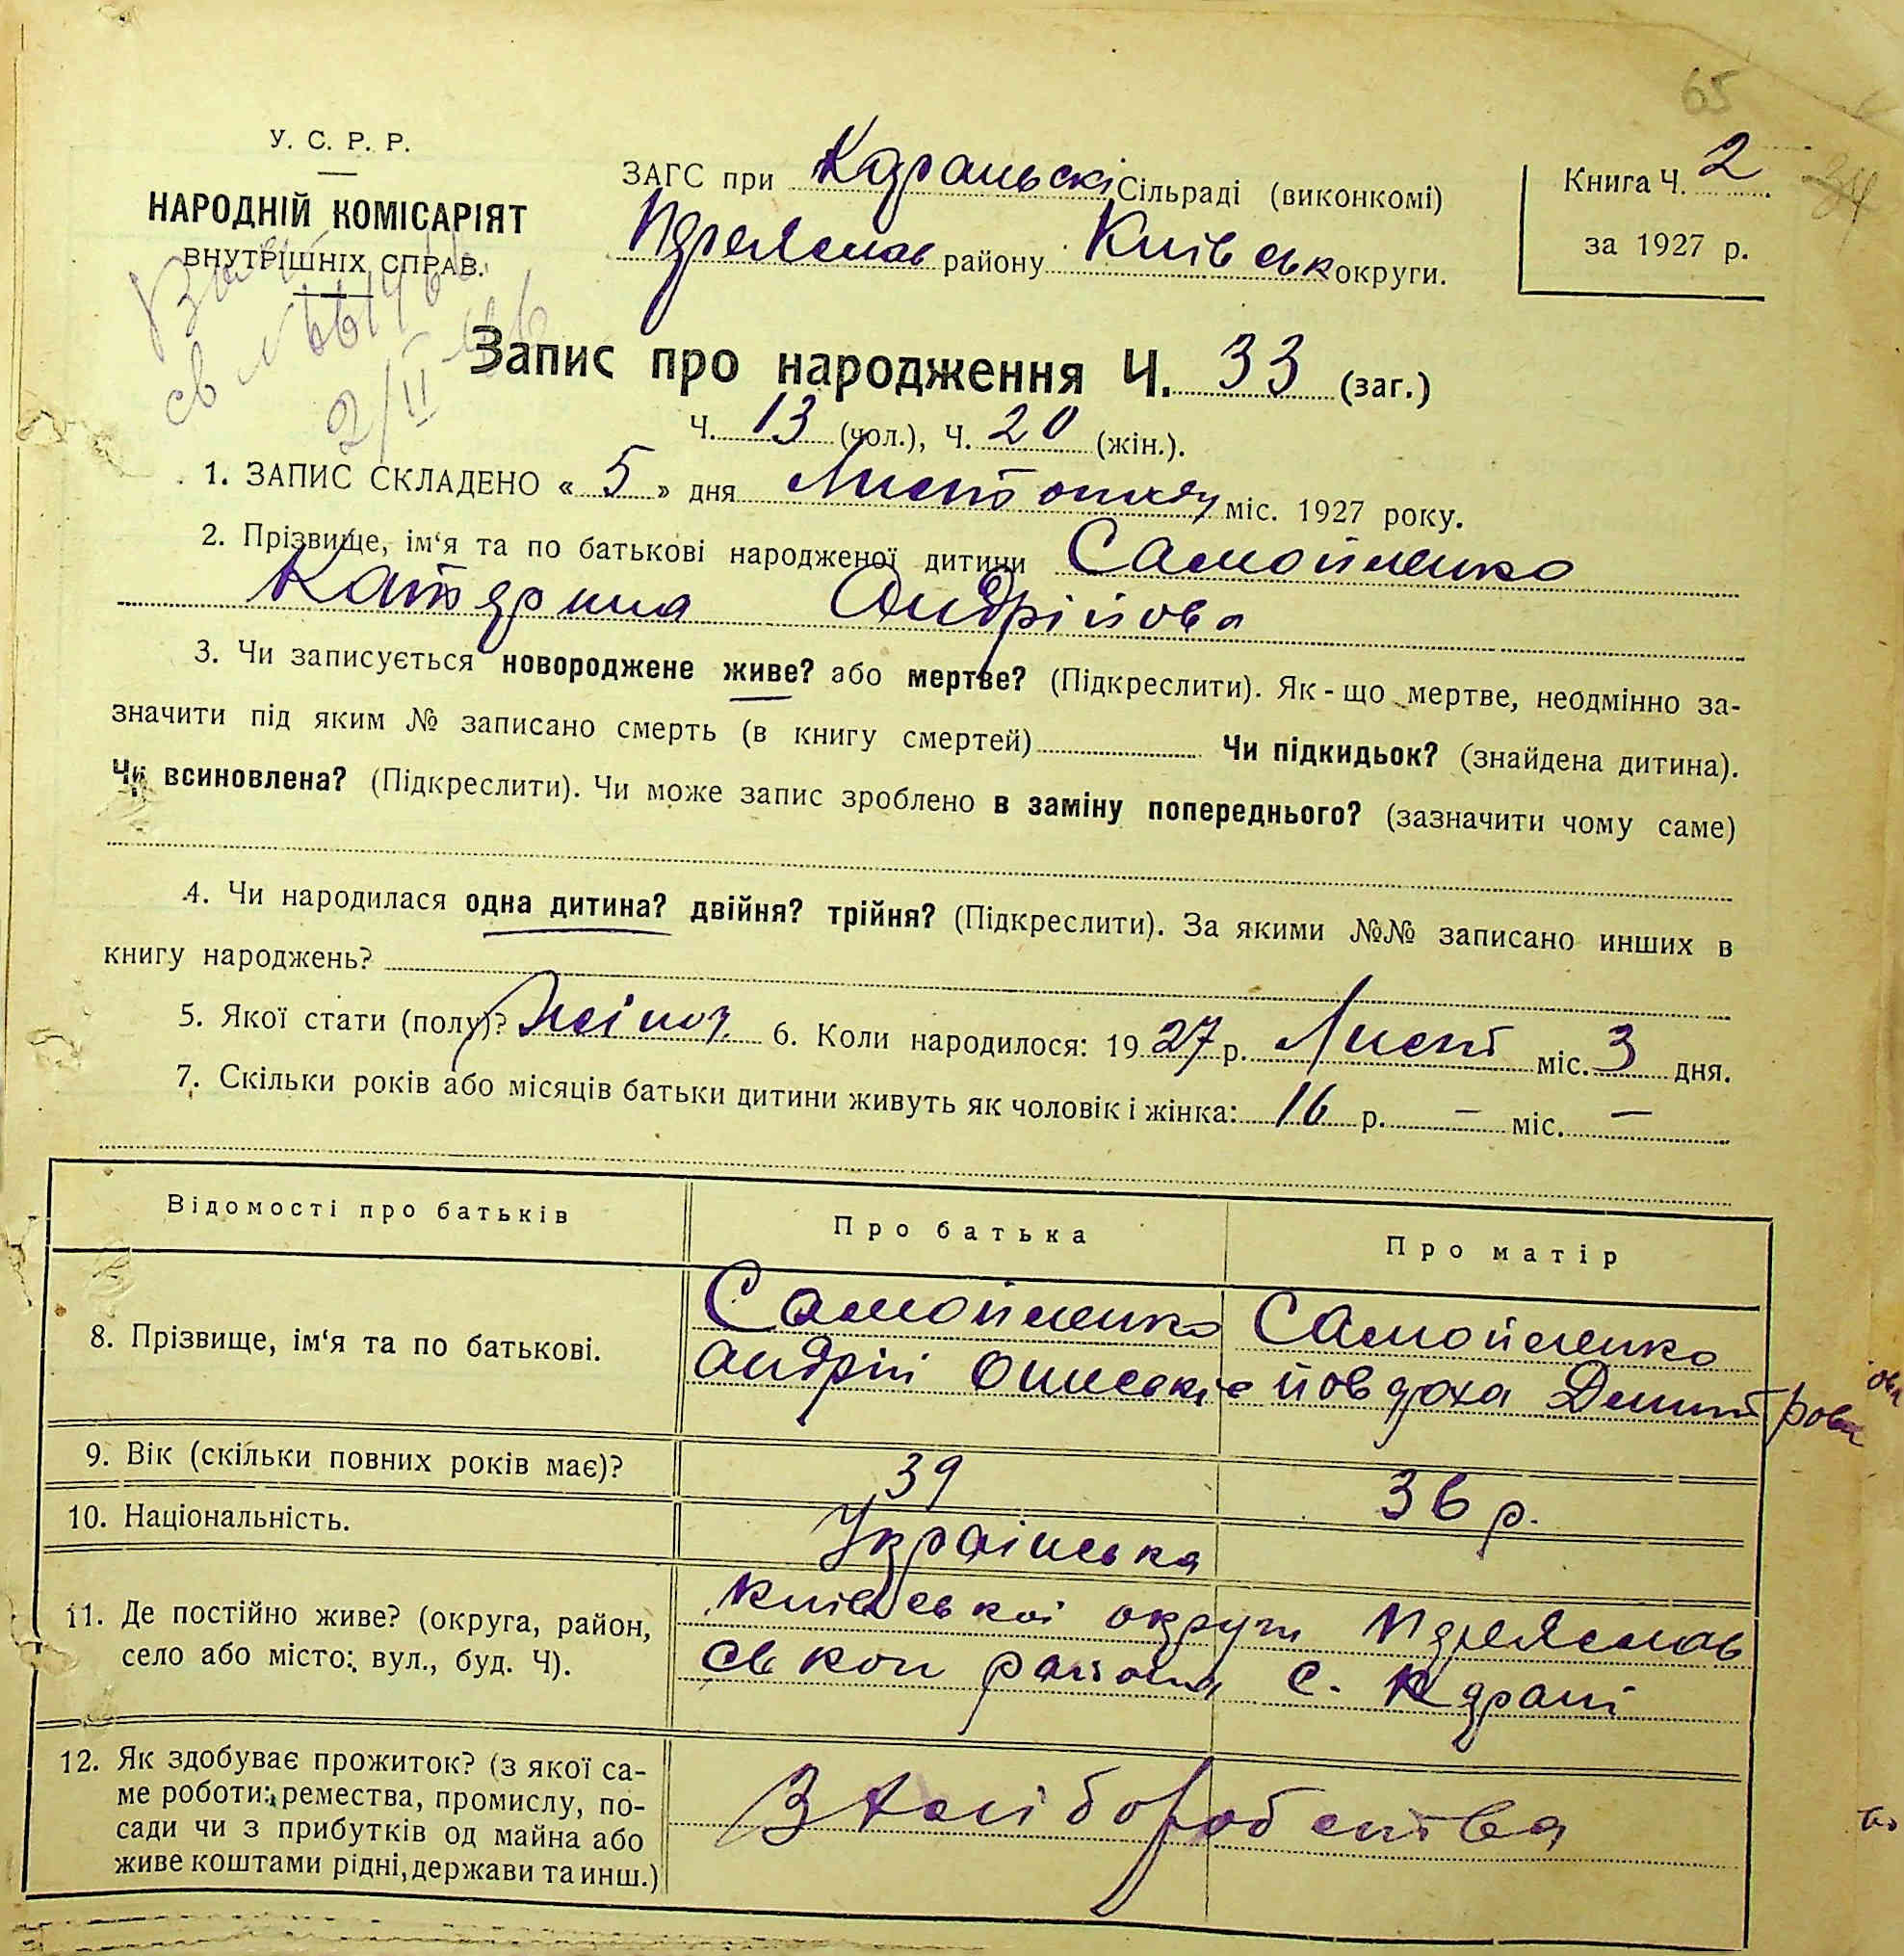 65
У. С. Р. Р.
НАРОДНІЙ КОМІСАРІЯТ
ВНУТРІШНІХ СПРАВ.
ЗАГС при Кадральскі Сільраді (виконкомі)
району Київськ округи.
Книга Ч. 2
34
за 1927 р.
2/II
Запис про народження Ч. 33 (заг.)
Ч. 13 (чол.), Ч. 20 (жін.).
1. ЗАПИС СКЛАДЕНО « 5 » дня Листопаду міс. 1927 року.
2. Прізвище, ім‘я та по батькові народженої дитини Самойленко
Катерина Андрійова
3. Чи записується новороджене живе? або мертве? (Підкреслити). Як-що мертве, неодмінно за-
значити під яким № записано смерть (в книгу смертей) Чи підкидьок? (знайдена дитина).
Чи всиновлена? (Підкреслити). Чи може запис зроблено в заміну попереднього? (зазначити чому саме)
4. Чи народилася одна дитина? двійня? трійня? (Підкреслити). За якими №№ записано инших в
книгу народжень?
5. Якої стати (полу)? Жіноч. 6. Коли народилося: 1927 р. Лист міс. 3 дня.
7. Скільки років або місяців батьки дитини живуть як чоловік і жінка: 16 р. — міс. —
Відомості про батьків Про батька Про матір
8. Прізвище, ім‘я та по батькові. Самойленко Самойленко
Андрій Йовдоха Дмитрова
9. Вік (скільки повних років має)? 39 36 р.
10. Національність. Українська
11. Де постійно живе? (округа, район, Київської округи Переяслав
село або місто: вул., буд. Ч). ськой района с.
12. Як здобуває прожиток? (з якої са-
ме роботи: ремества, промислу, по-
сади чи з прибутків од майна або
живе коштами рідні, держави та инш.)
З хліборобства